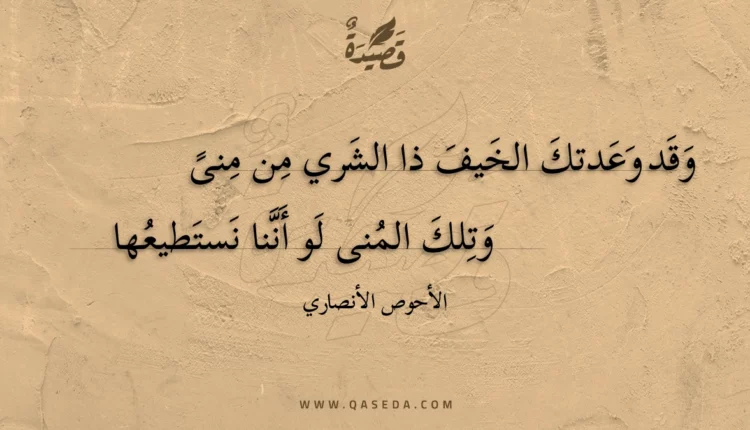 قَصِيدَةٌ
وَقَد وَعَدتكَ الخَيفَ ذا الشَري مِن مِنىً
وَتِلكَ المُنى لَو أَنَّنا نَستَطيعُها
الأحوص الأنصاري
WWW.QASEDA.COM